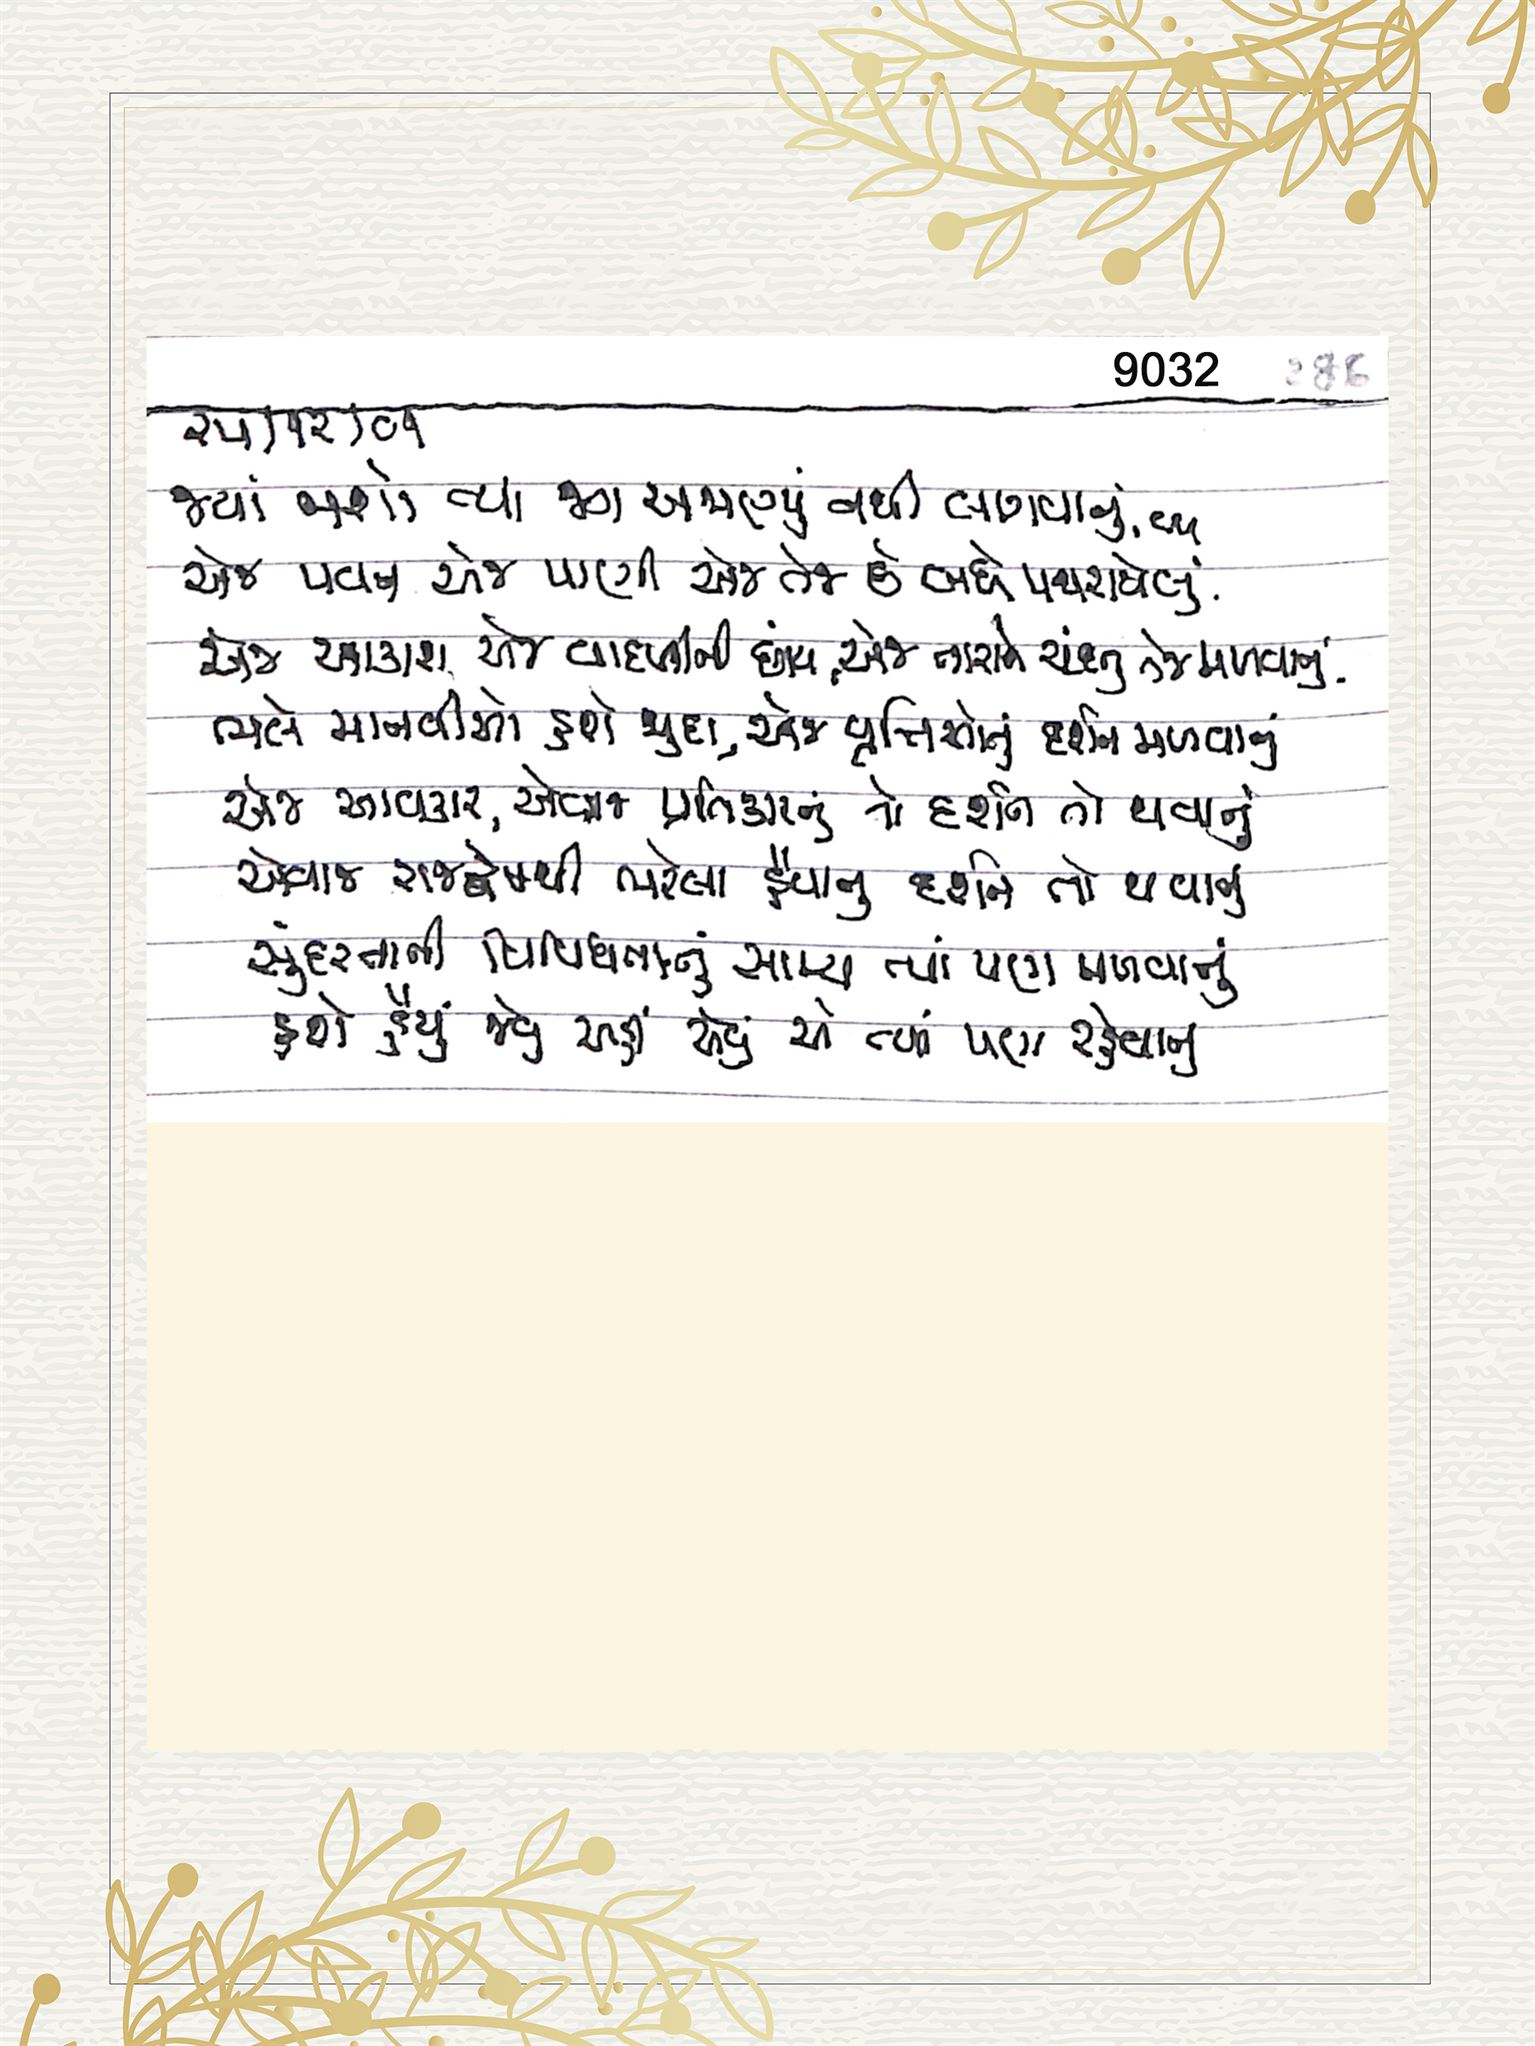 9032
૨૫/૧૨/૦૧
જ્યાં જાશો ત્યાં જગ અજાણ્યું નથી લાગવાનું.
એજ પવન એજ પાણી એજ તેજ છે બધે પથરાયેલું.
એજ આકાશ એજ વાદળીની છાંય, એજ તારાને ચંદ્રનું તેજ મળવાનું.
ભલે માનવીઓ હશે જુદા, એજ વૃત્તિઓનું દર્શન મળવાનું
એજ આવકાર, એવાજ પ્રતિકારનું તો દર્શન તો થવાનું
એવાજ રાગદ્વેષથી ભરેલા હૈયાનું દર્શન તો થવાનું
સુંદરતાની વિવિધતાનું સામ્ય ત્યાં પણ મળવાનું
હશે હૈયું જેવું અહીં એવું એ ત્યાં પણ રહેવાનું